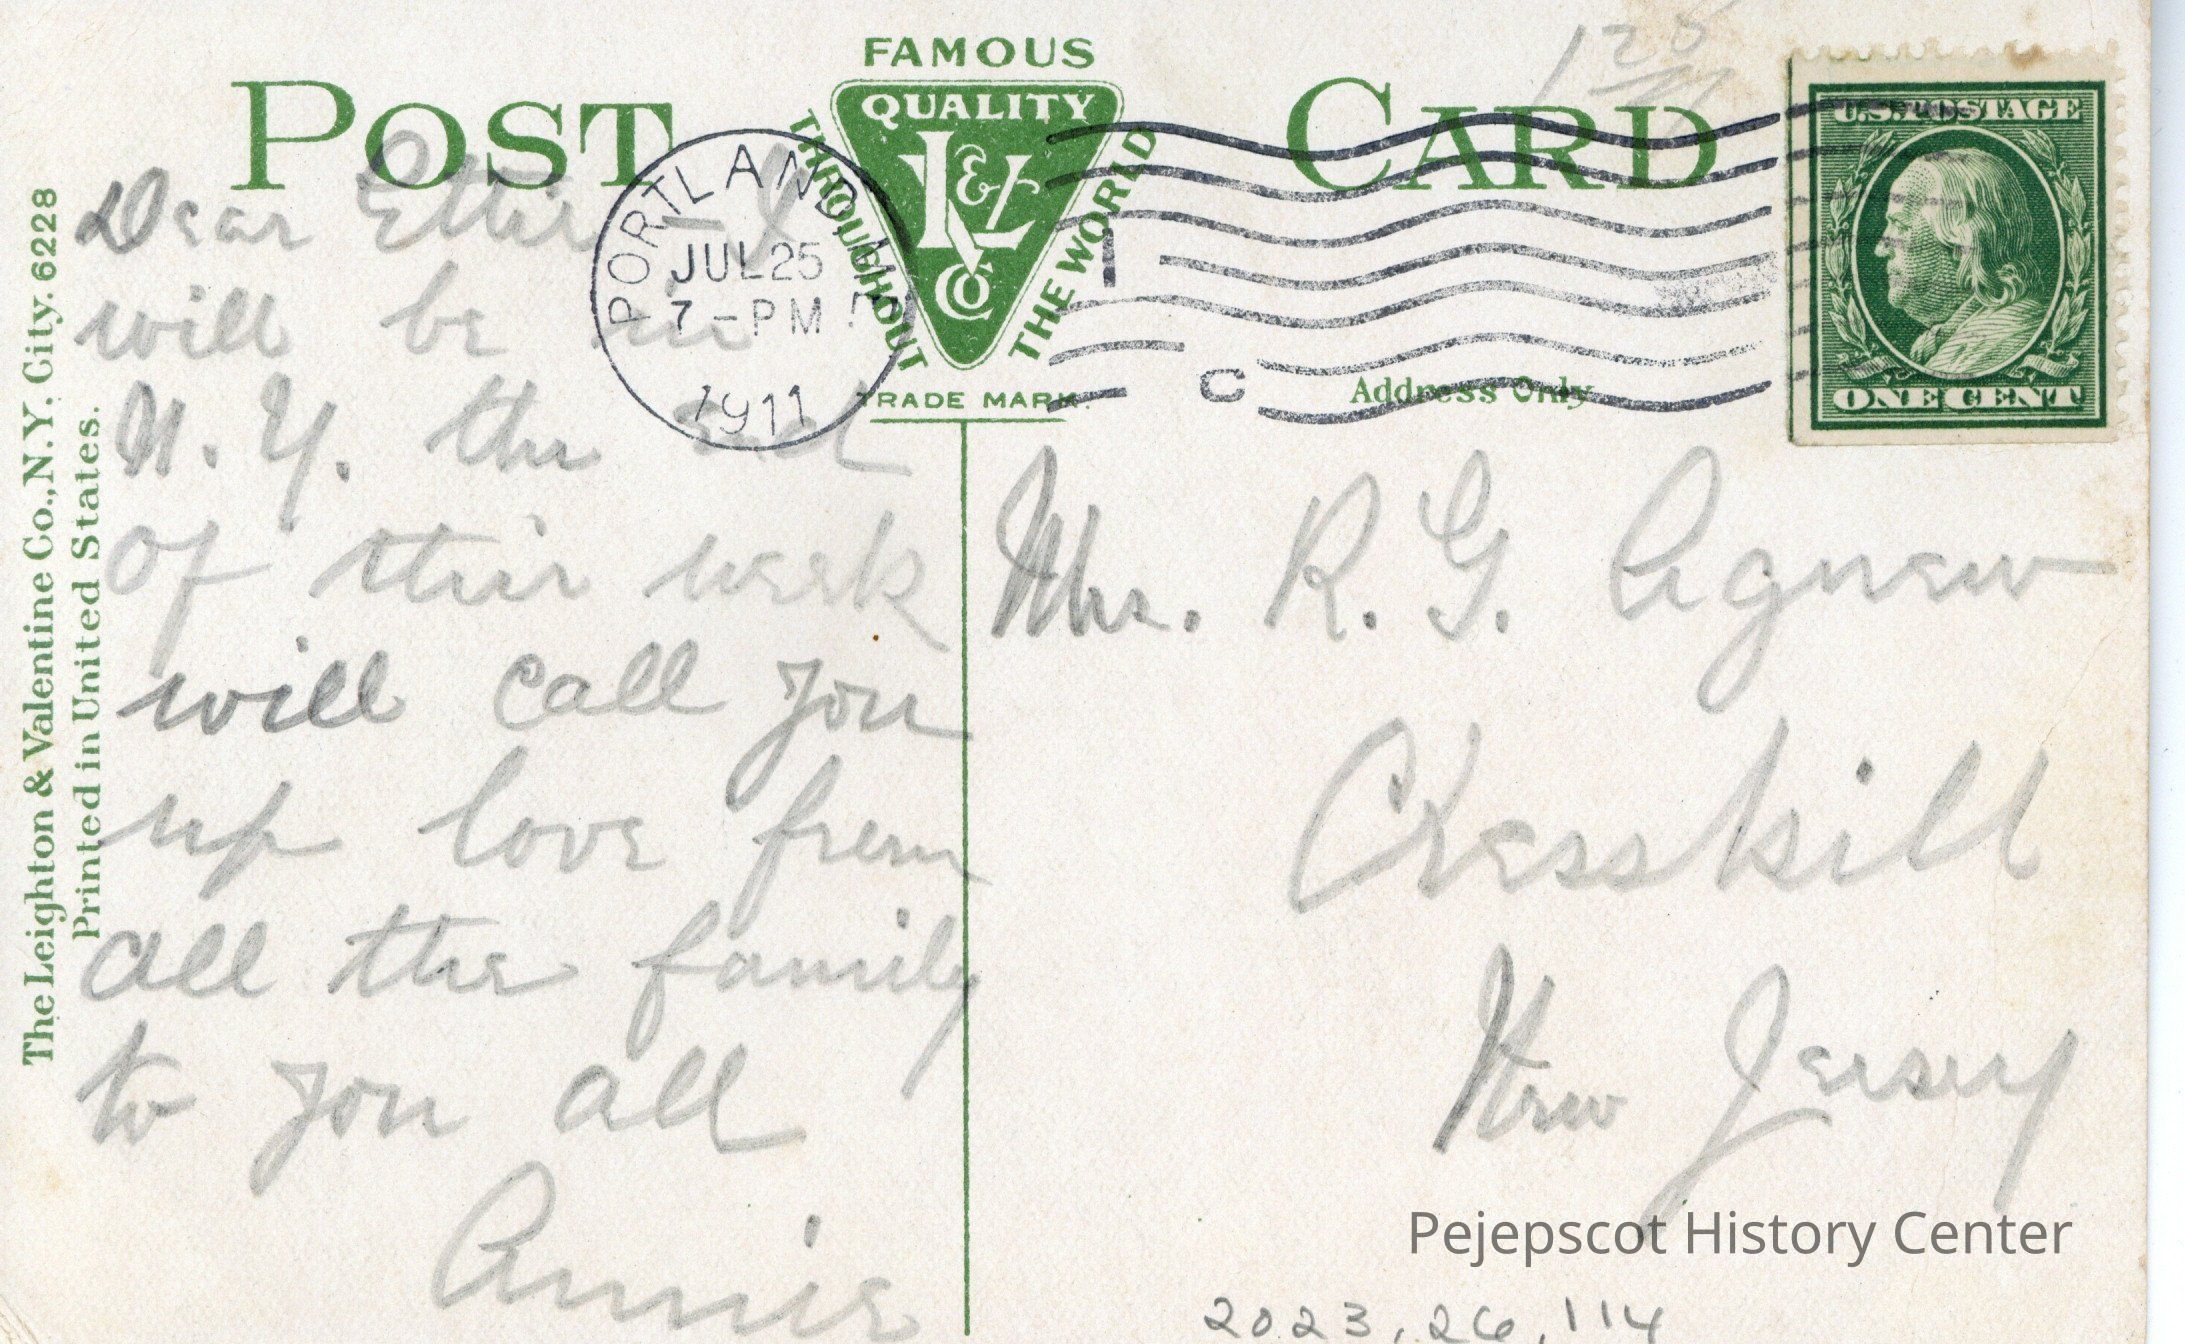 FAMOUS
POST CARD
QUALITY
L & V
Co
THROUGHOUT THE WORLD
TRADE MARK.
Address Only
U.S. POSTAGE
ONE CENT
PORTLAND, M
JUL 25
7 - PM
1911
C
The Leighton & Valentine Co., N.Y. City. 6228
Printed in United States.
Dear - I
will be in
N. Y. the last
of this week
will call you
up love from
all the family
to you all
Annie
Mrs. R. G. Agnew
Cresskill
New Jersey
Pejepscot History Center
2023.26.114